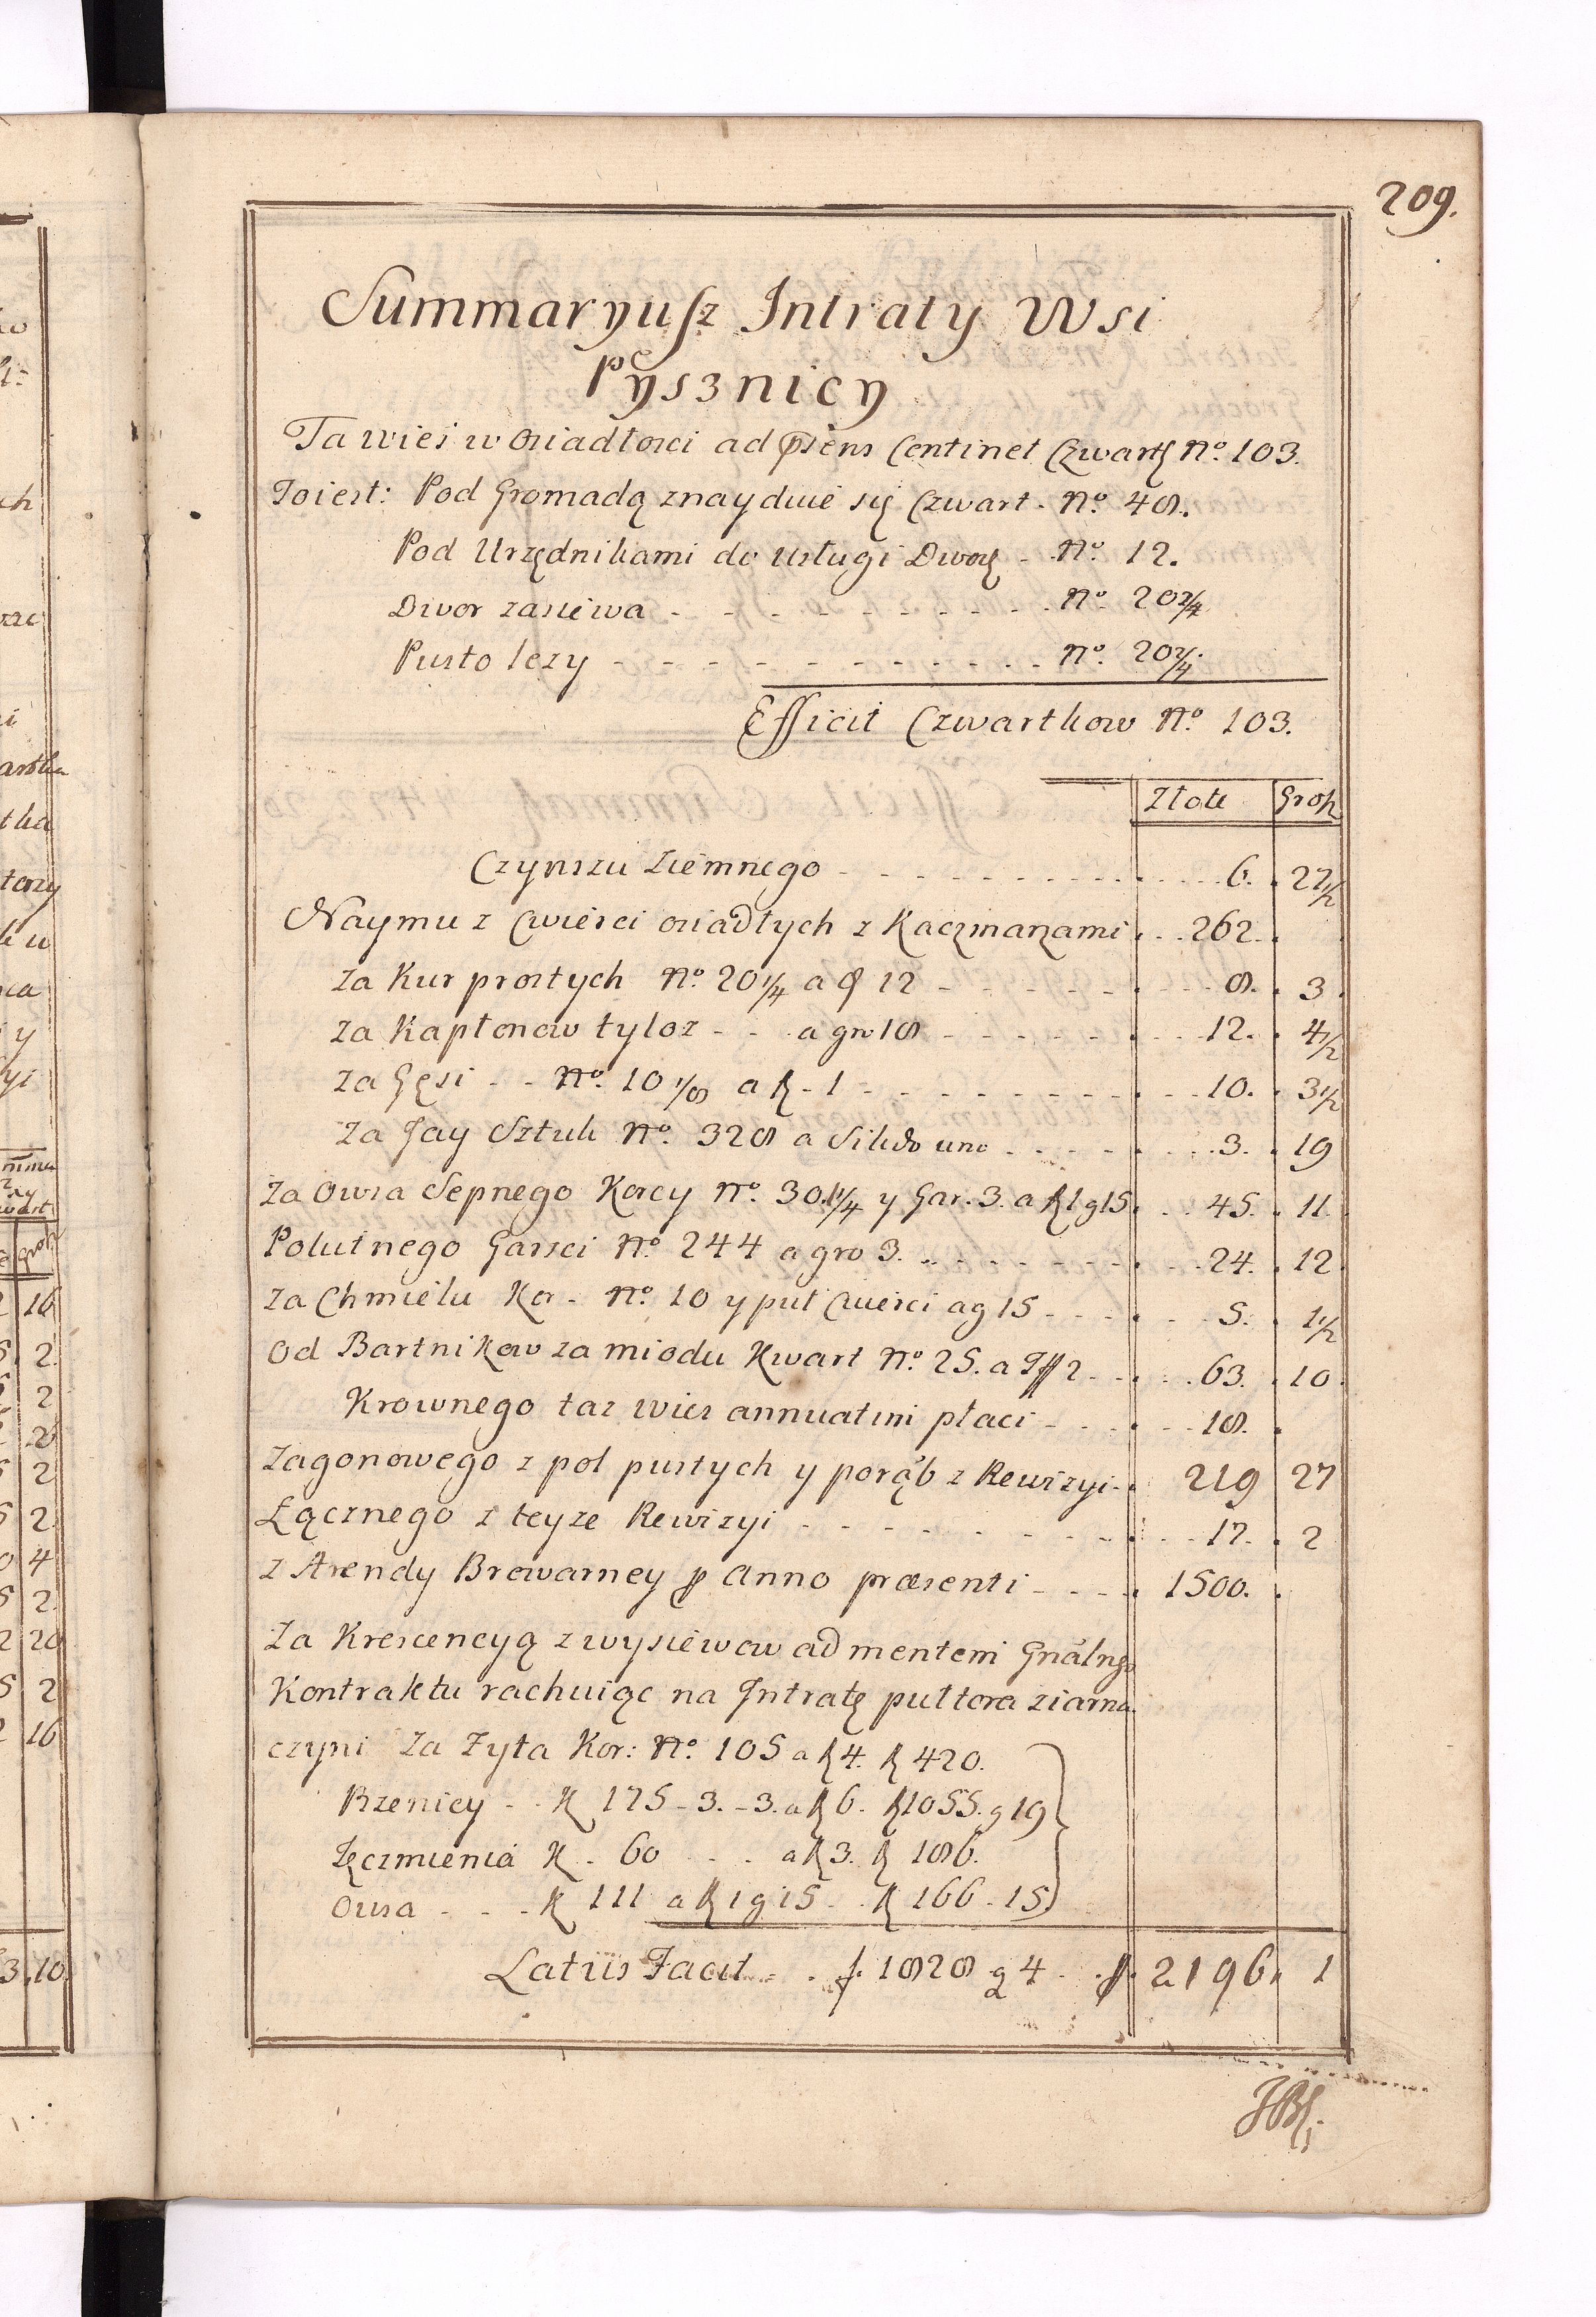 209.
Summaryusz Intraty Wsi
Pysznicy
Ta wies w osiadłosci ad psens Continet Czwartk No. 103.
To iest: Pod Gromadą znayduie się Czwart. No. 48.
Pod Urzędnikami do usługi Dwors - No. 12.
Dwor zasiewa - - - No. 20 2/4
Pusto lezy - - - No. 20 2/4.
Efficit Czwartkow No. 103.
Złote Grosz
Czynszu Ziemnego - - - 6. 27 1/2
Naymu z Cwierci osiadłych z Kaczmarzami 262.
Za Kur prostych No. 20 1/4 a g 12 - - - 8. 3
Za Kapłonow tyloz - - a gro 18 - - - 12. 4 1/2
Za Gęsi - - No. 10 1/8 a zł - 1 - - - 10. 3 1/2
Za Jay Sztuk No. 328 a Solido uno - - - 3. 19
Za Owsa Sepnego Korcy No. 30 1/4 y Gar. 3. a zł 1 g 15. 45. 11
Polutnego Garsci No. 244 a gro 3. - - - 24. 12
Za Chmielu Kor - No. 10 y puł Cwierci a g 15 - - - 5. 1 1/2
Od Bartnikow za miodu Kwart No. 25. a 2 - - - 63. 10
Krownego taz wies annuatim płaci - - - 18.
Zagonowego z pol pustych y porąb z Rewizyi - 219 27
Łącznego z teyze Rewizyi - - - 17. 2
Z Arendy Browarney p Anno præsenti - - - 1500.
Za Krescencyą z wysiewow ad mentem Gnalngo
Kontraktu rachuiąc na Intratę puł tora ziarna
czyni Za Zyta Kor: No. 105 a zł 4. zł 420.
Pszenicy - - K 175 - 3. - 3. a zł 6. zł 1055. g 19
Jęczmienia K - 60 - - a zł 3. zł 186.
Owsa - - - K 111 a zł 1 g 15 - - zł 166 - 15
Latus Facit - - f. 1828 g 4 - f. 2196. 1
16
2.
2
2
2.
4
2.
20
2
16
3.10